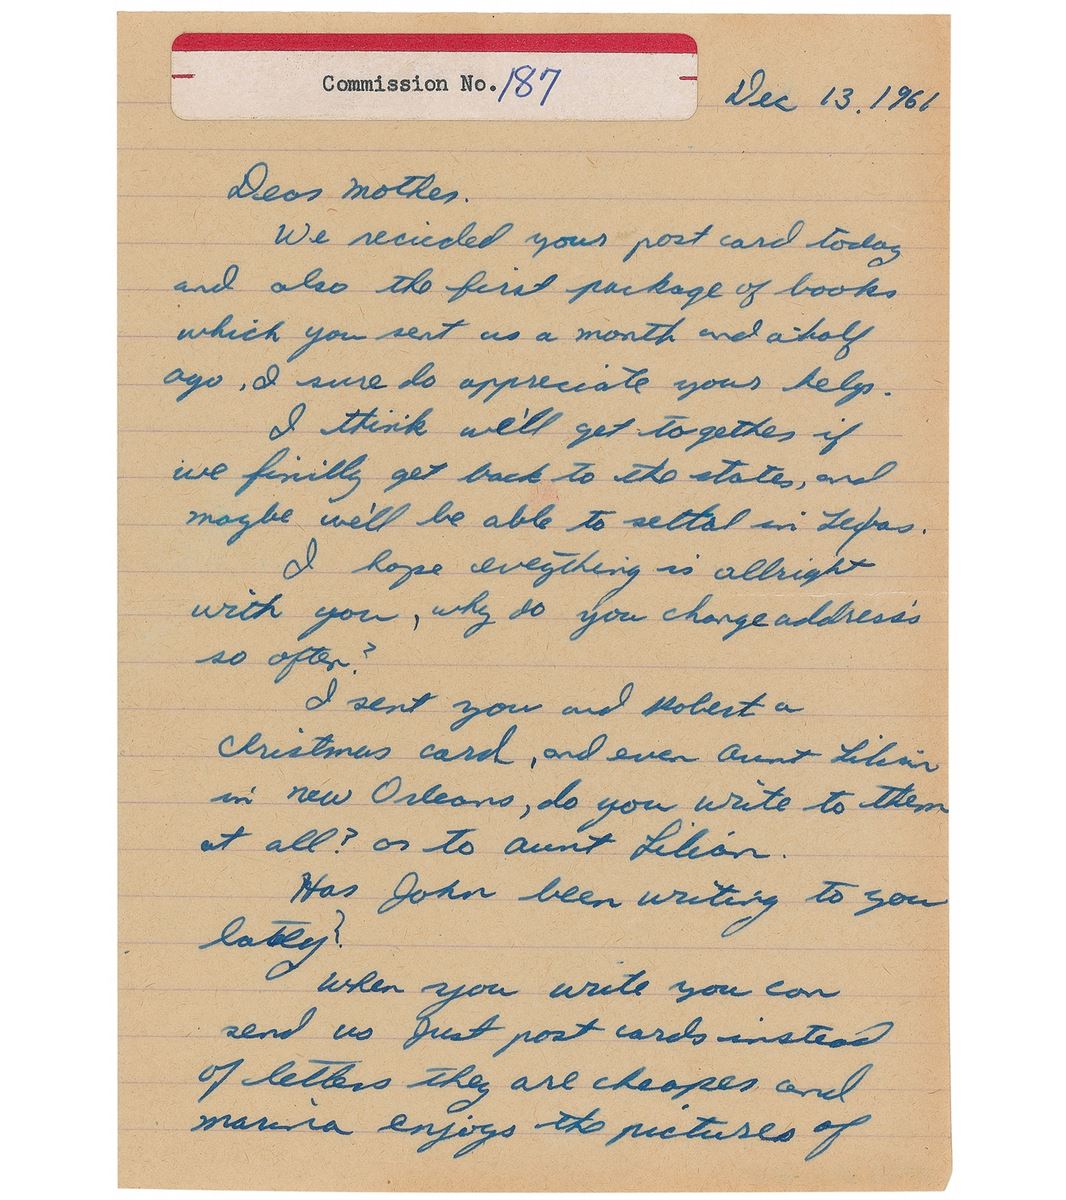 Commission No. 187
Dec 13. 1961
Dear Mother.
We recieded your post card today
and also the first package of books
which you sent us a month and a half
ago, I sure do appreciate your help.
I think we'll get together if
we finilly get back to the states, and
maybe we'll be able to settal in Texas.
I hope eveything is allright
with you, why do you change address's
so often?
I sent you and Robert a
christmas card, and even aunt Lilian
in new Orleans, do you write to them
at all? or to aunt Lilian.
Has John been writing to you
lately?
When you write you can
send us Just post cards instead
of letters they are cheaper and
marina enjoys the pictures of